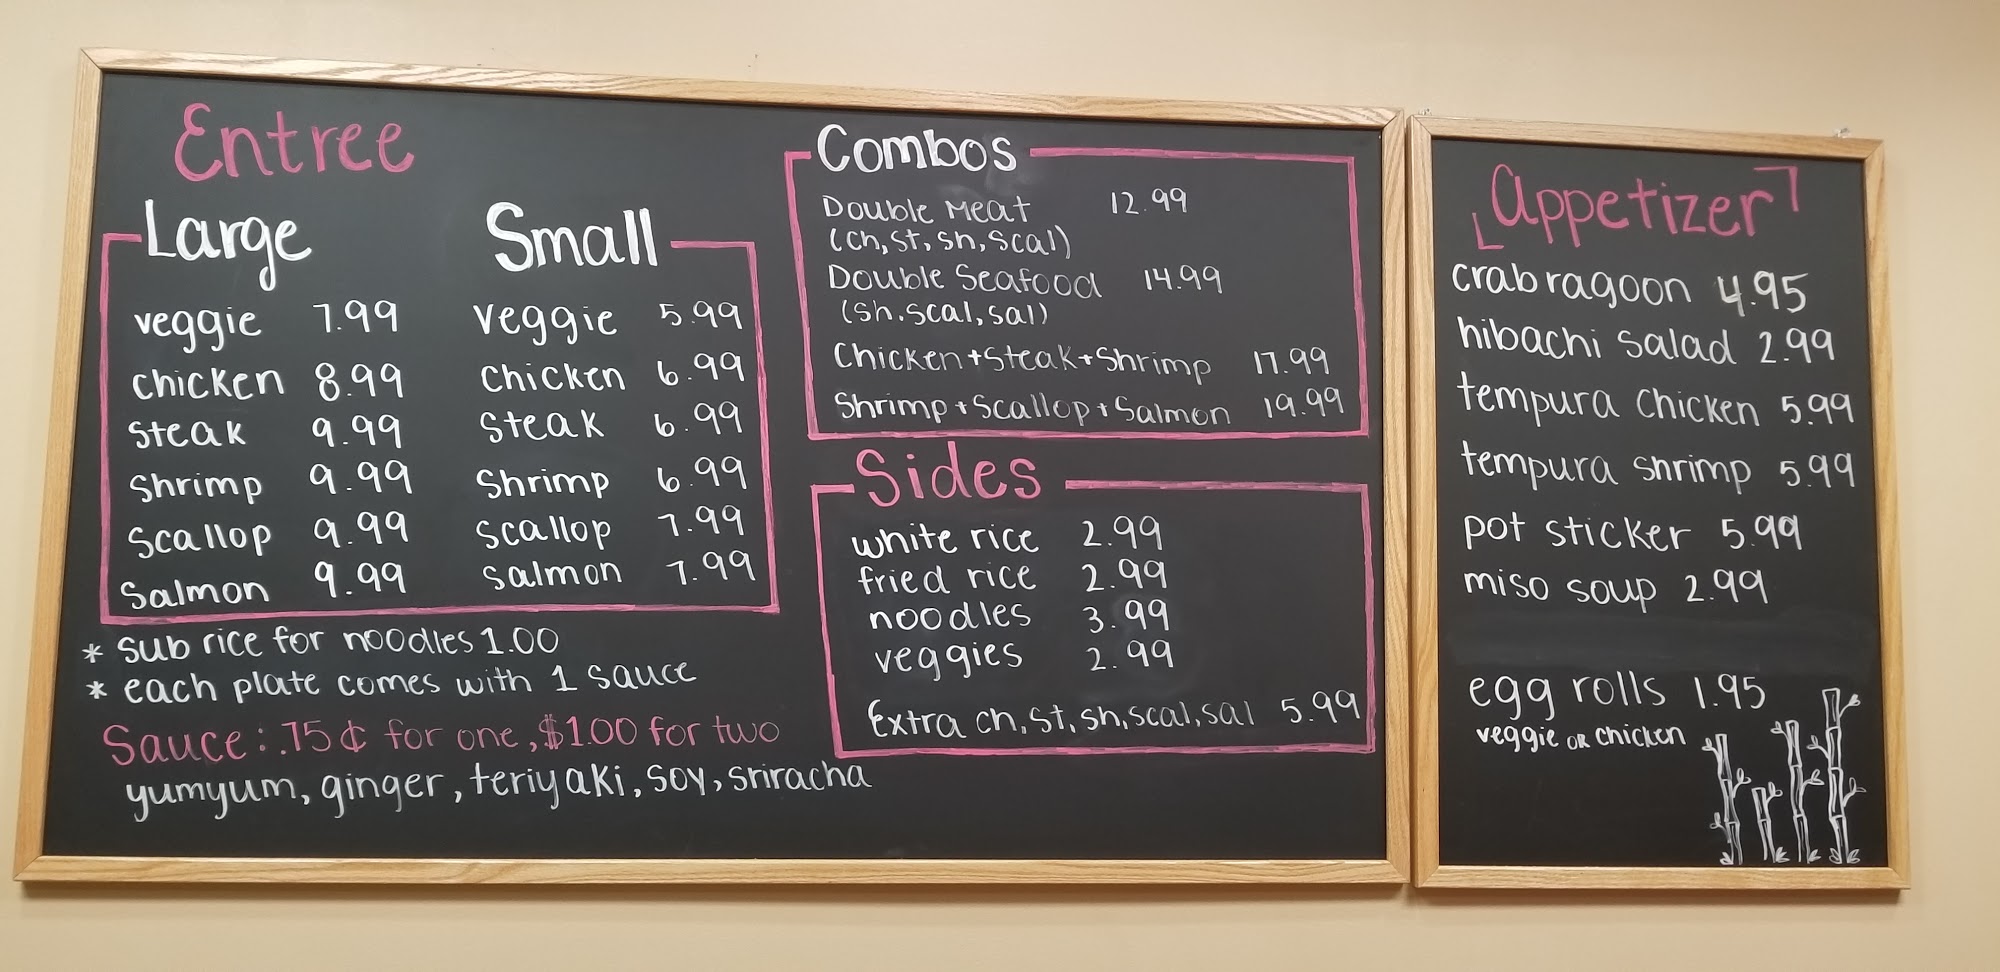 Entree
Large
veggie 7.99
chicken 8.99
steak 9.99
Shrimp 9.99
Scallop 9.99
Salmon 9.99
Small
veggie 5.99
chicken 6.99
steak 6.99
Shrimp 6.99
Scallop 7.99
Salmon 7.99
* sub rice for noodles 1.00
* each plate comes with 1 sauce
Sauce: .75¢ for one, $1.00 for two
yumyum, ginger, teriyaki, soy, sriracha
Combos
Double Meat 12.99
(ch, st, sh, scal)
Double Seafood 14.99
(sh. scal, sal)
Chicken + Steak + Shrimp 17.99
Shrimp + Scallop + Salmon 19.99
Sides
white rice 2.99
fried rice 2.99
noodles 3.99
veggies 2.99
Extra ch, st, sh, scal, sal 5.99
Appetizer
crab ragoon 4.95
hibachi salad 2.99
tempura chicken 5.99
tempura shrimp 5.99
pot sticker 5.99
miso soup 2.99
egg rolls 1.95
veggie OR chicken